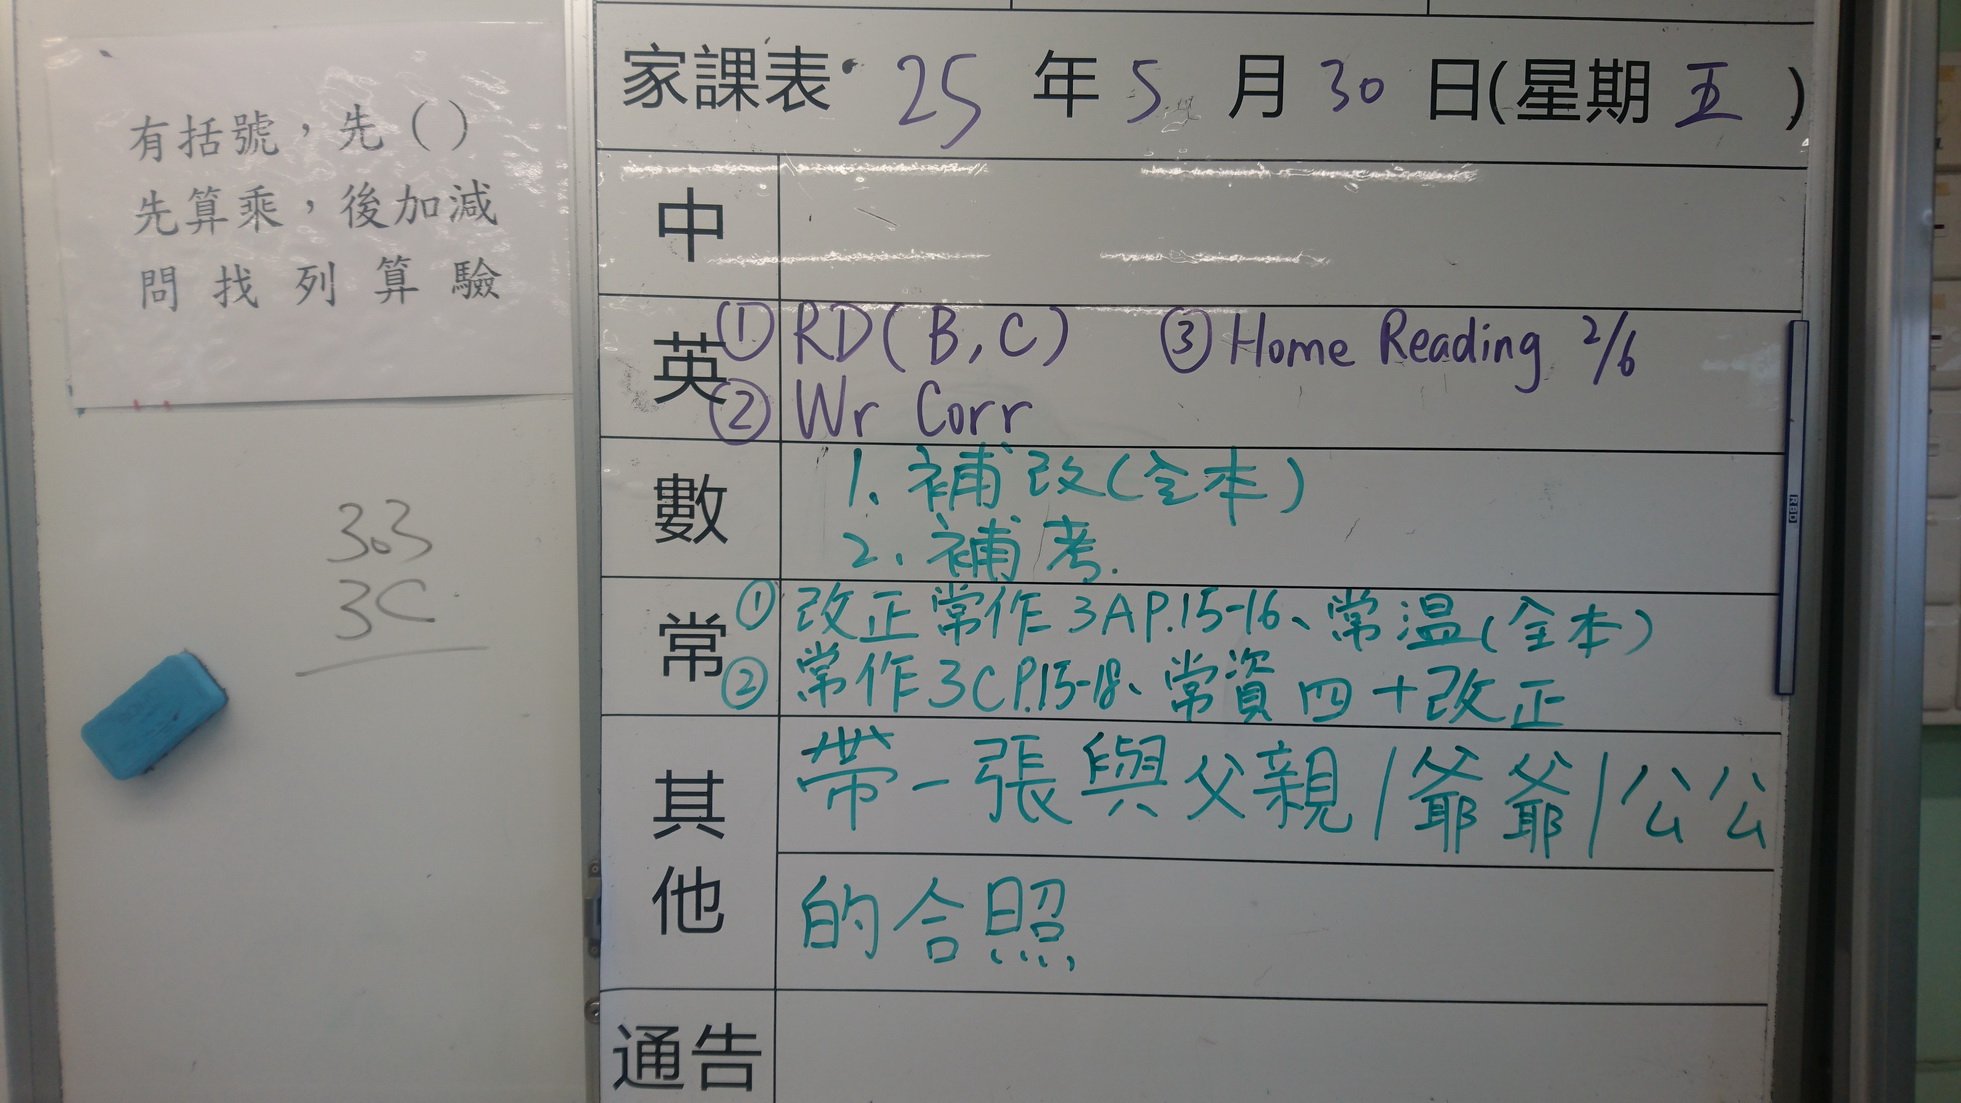 有括號，先（）
先算乘，後加減
問找列算驗
303
3C
家課表 25 年 5 月 30 日(星期 五 )
中
英
① RD(B,C) ③ Home Reading 2/6
② Wr Corr
數
1. 補改(全本)
2. 補考.
常
① 改正常作3A P.15-16、常溫(全本)
② 常作3C P.15-18、常資四+改正
其他
帶一張與父親/爺爺/公公
的合照
通告